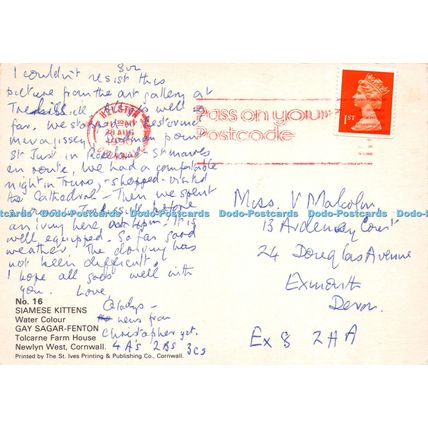 I couldn't resist this
picture from the art gallery at
Trelissick. All is well so
far. We stopped at Restormel
Mevagissey
St Just in Roseland - St Mawes
en route, we had a comfortable
night in Truro, - shopped - visited
the Cathedral - Then we spent
before
arriving here, at 4pm. It is
well equipped. So far good
weather. The driving has
not been difficult.
I hope all goes well with
you. Love
Gladys -
news from
Christopher yet.
4 A's 2 B's 3 C's
No. 16
SIAMESE KITTENS
Water Colour
GAY SAGAR-FENTON
Tolcarne Farm House
Newlyn West, Cornwall.
Printed by The St. Ives Printing & Publishing Co., Cornwall.
HELSTON
AUG
Pass on your
Postcode
1ST
Miss. V Malcolm
13 Ardenay Court
24 Douglas Avenue
Exmouth
Devon.
EX8 2HA
Dodo-Postcards Dodo-Postcards Dodo-Postcards Dodo-Postcards Dodo-Postcards Dodo-Postcards